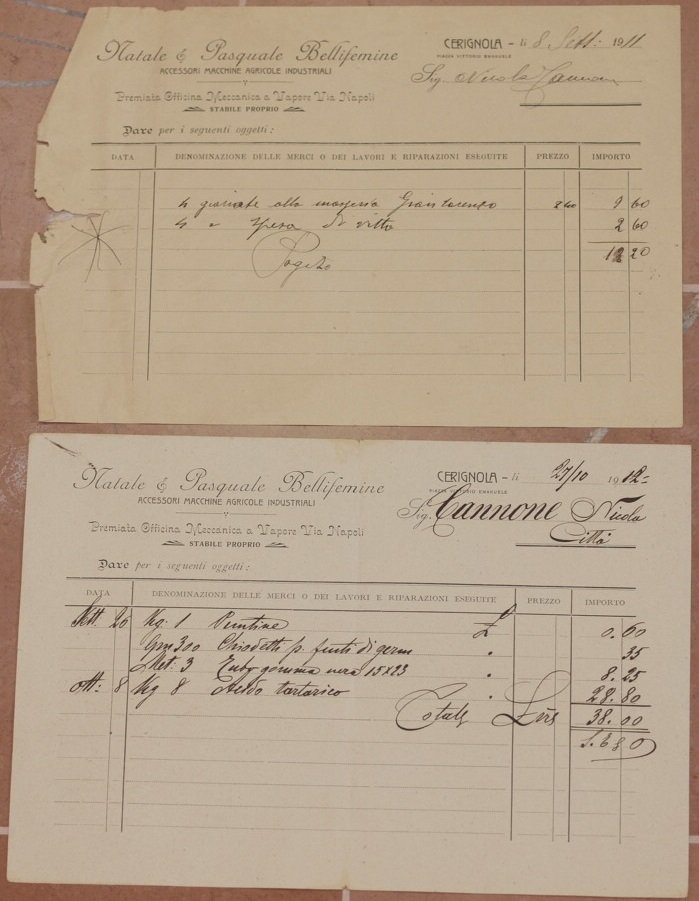 Natale & Pasquale Bellifemine
ACCESSORI MACCHINE AGRICOLE INDUSTRIALI
Premiata Officina Meccanica a Vapore Via Napoli
STABILE PROPRIO
CERIGNOLA - li 8 Sett. 1911
PIAZZA VITTORIO EMANUELE
Sig. Nicola Cannone
Dare per i seguenti oggetti:
DATA DENOMINAZIONE DELLE MERCI O DEI LAVORI E RIPARAZIONI ESEGUITE PREZZO IMPORTO
4 giornate alla masseria 2 40 9 60
4 " spesa di vitto 2 60
12 20
Pagato
Natale & Pasquale Bellifemine
ACCESSORI MACCHINE AGRICOLE INDUSTRIALI
Premiata Officina Meccanica a Vapore Via Napoli
STABILE PROPRIO
CERIGNOLA - li 27/10 1912=
PIAZZA VITTORIO EMANUELE
Sig. Cannone Nicola
Città
Dare per i seguenti oggetti:
DATA DENOMINAZIONE DELLE MERCI O DEI LAVORI E RIPARAZIONI ESEGUITE PREZZO IMPORTO
Sett. 26 Kg. 1 Puntine £ 0.60
Gm 300 Chiodetti p. " 35
Met. 3 Tubo gomma nera 15x23 " 8.25
Ott: 8 Kg 8 Acido tartarico " 28.80
Totale Lire 38.00